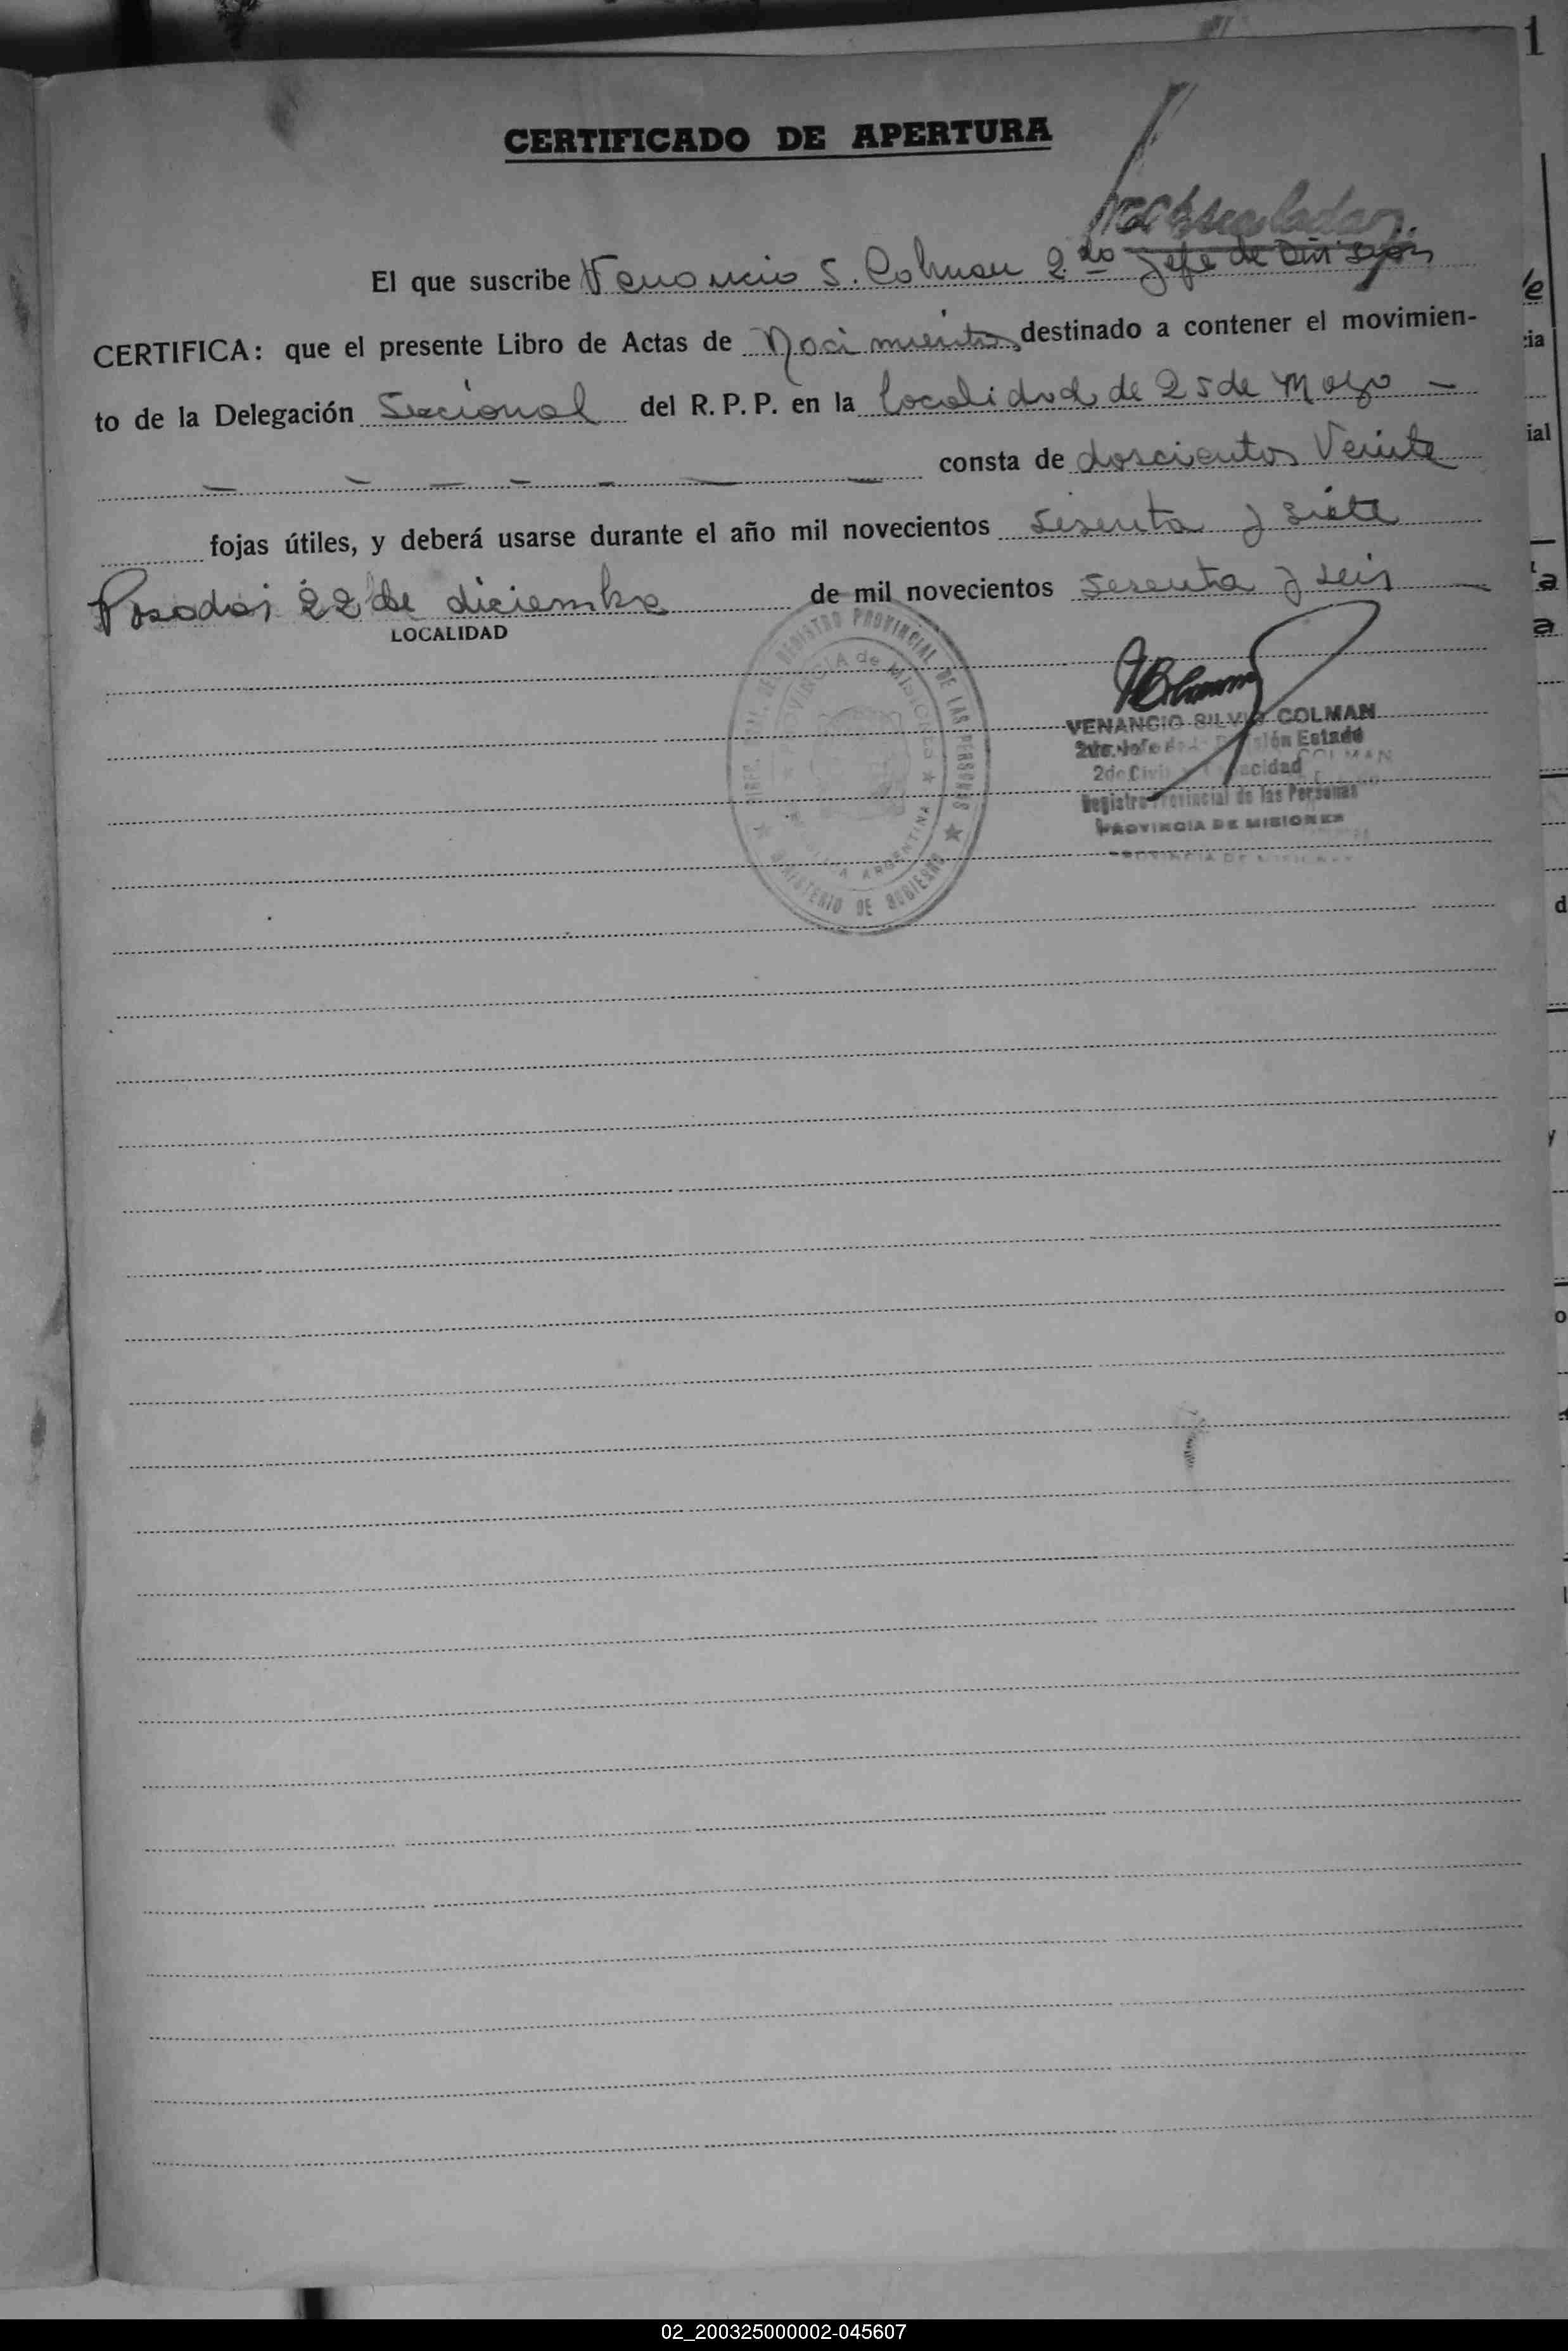 1
CERTIFICADO DE APERTURA
El que suscribe Venancio S. Colman 2do Jefe de Division
CERTIFICA: que el presente Libro de Actas de Nacimientos destinado a contener el movimien-
to de la Delegación Seccional del R. P. P. en la localidad de 25 de Mayo —
consta de doscientos Veinte
fojas útiles, y deberá usarse durante el año mil novecientos sesenta y siete
Posadas 22 de diciembre de mil novecientos sesenta y seis
LOCALIDAD
REGISTRO PROVINCIAL DE LAS PERSONAS
PROVINCIA de MISIONES
ARGENTINA
MINISTERIO DE GOBIERNO
VENANCIO SILVIO COLMAN
2do. Jefe División Estado
Registro Provincial de las Personas
PROVINCIA DE MISIONES
02_200325000002-045607